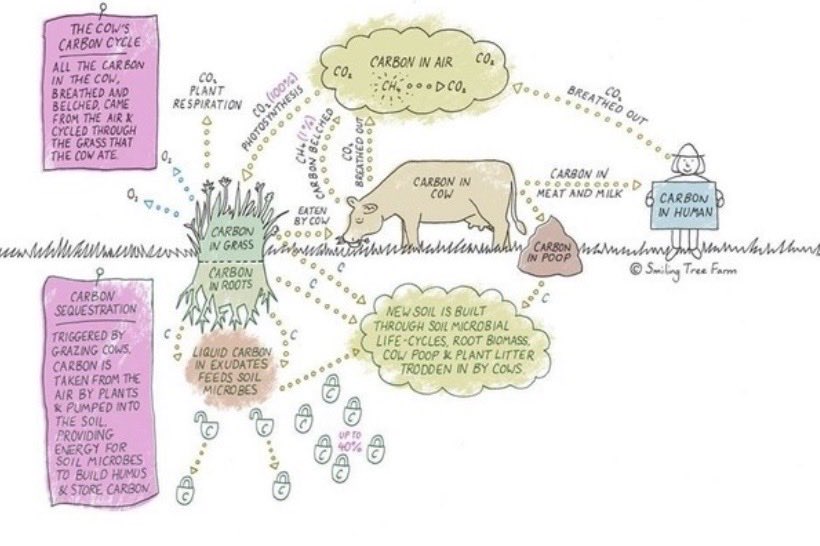 THE COW'S
CARBON CYCLE
ALL THE CARBON
IN THE COW,
BREATHED AND
BELCHED, CAME
FROM THE AIR &
CYCLED THROUGH
THE GRASS THAT
THE COW ATE.
CO₂
PLANT
RESPIRATION
CO₂ (100%)
PHOTOSYNTHESIS
CARBON IN AIR
CO₂
CO₂
CH₄
CO₂
CH₄ (1%)
CARBON BELCHED
CO₂
BREATHED OUT
CO₂
BREATHED OUT
O₂
O₂
EATEN
BY COW
CARBON IN
COW
CARBON IN
MEAT AND MILK
CARBON
IN HUMAN
CARBON
IN GRASS
CARBON
IN ROOTS
CARBON
IN POOP
© Smiling Tree Farm
CARBON
SEQUESTRATION
TRIGGERED BY
GRAZING COWS.
CARBON IS
TAKEN FROM THE
AIR BY PLANTS
& PUMPED INTO
THE SOIL,
PROVIDING
ENERGY FOR
SOIL MICROBES
TO BUILD HUMUS
& STORE CARBON
C
C
C
C
C
NEW SOIL IS BUILT
THROUGH SOIL MICROBIAL
LIFE-CYCLES, ROOT BIOMASS,
COW POOP & PLANT LITTER
TRODDEN IN BY COWS.
LIQUID CARBON
IN EXUDATES
FEEDS SOIL
MICROBES
C
C
C
C
C
C
C
C
C
C
UP TO
40%